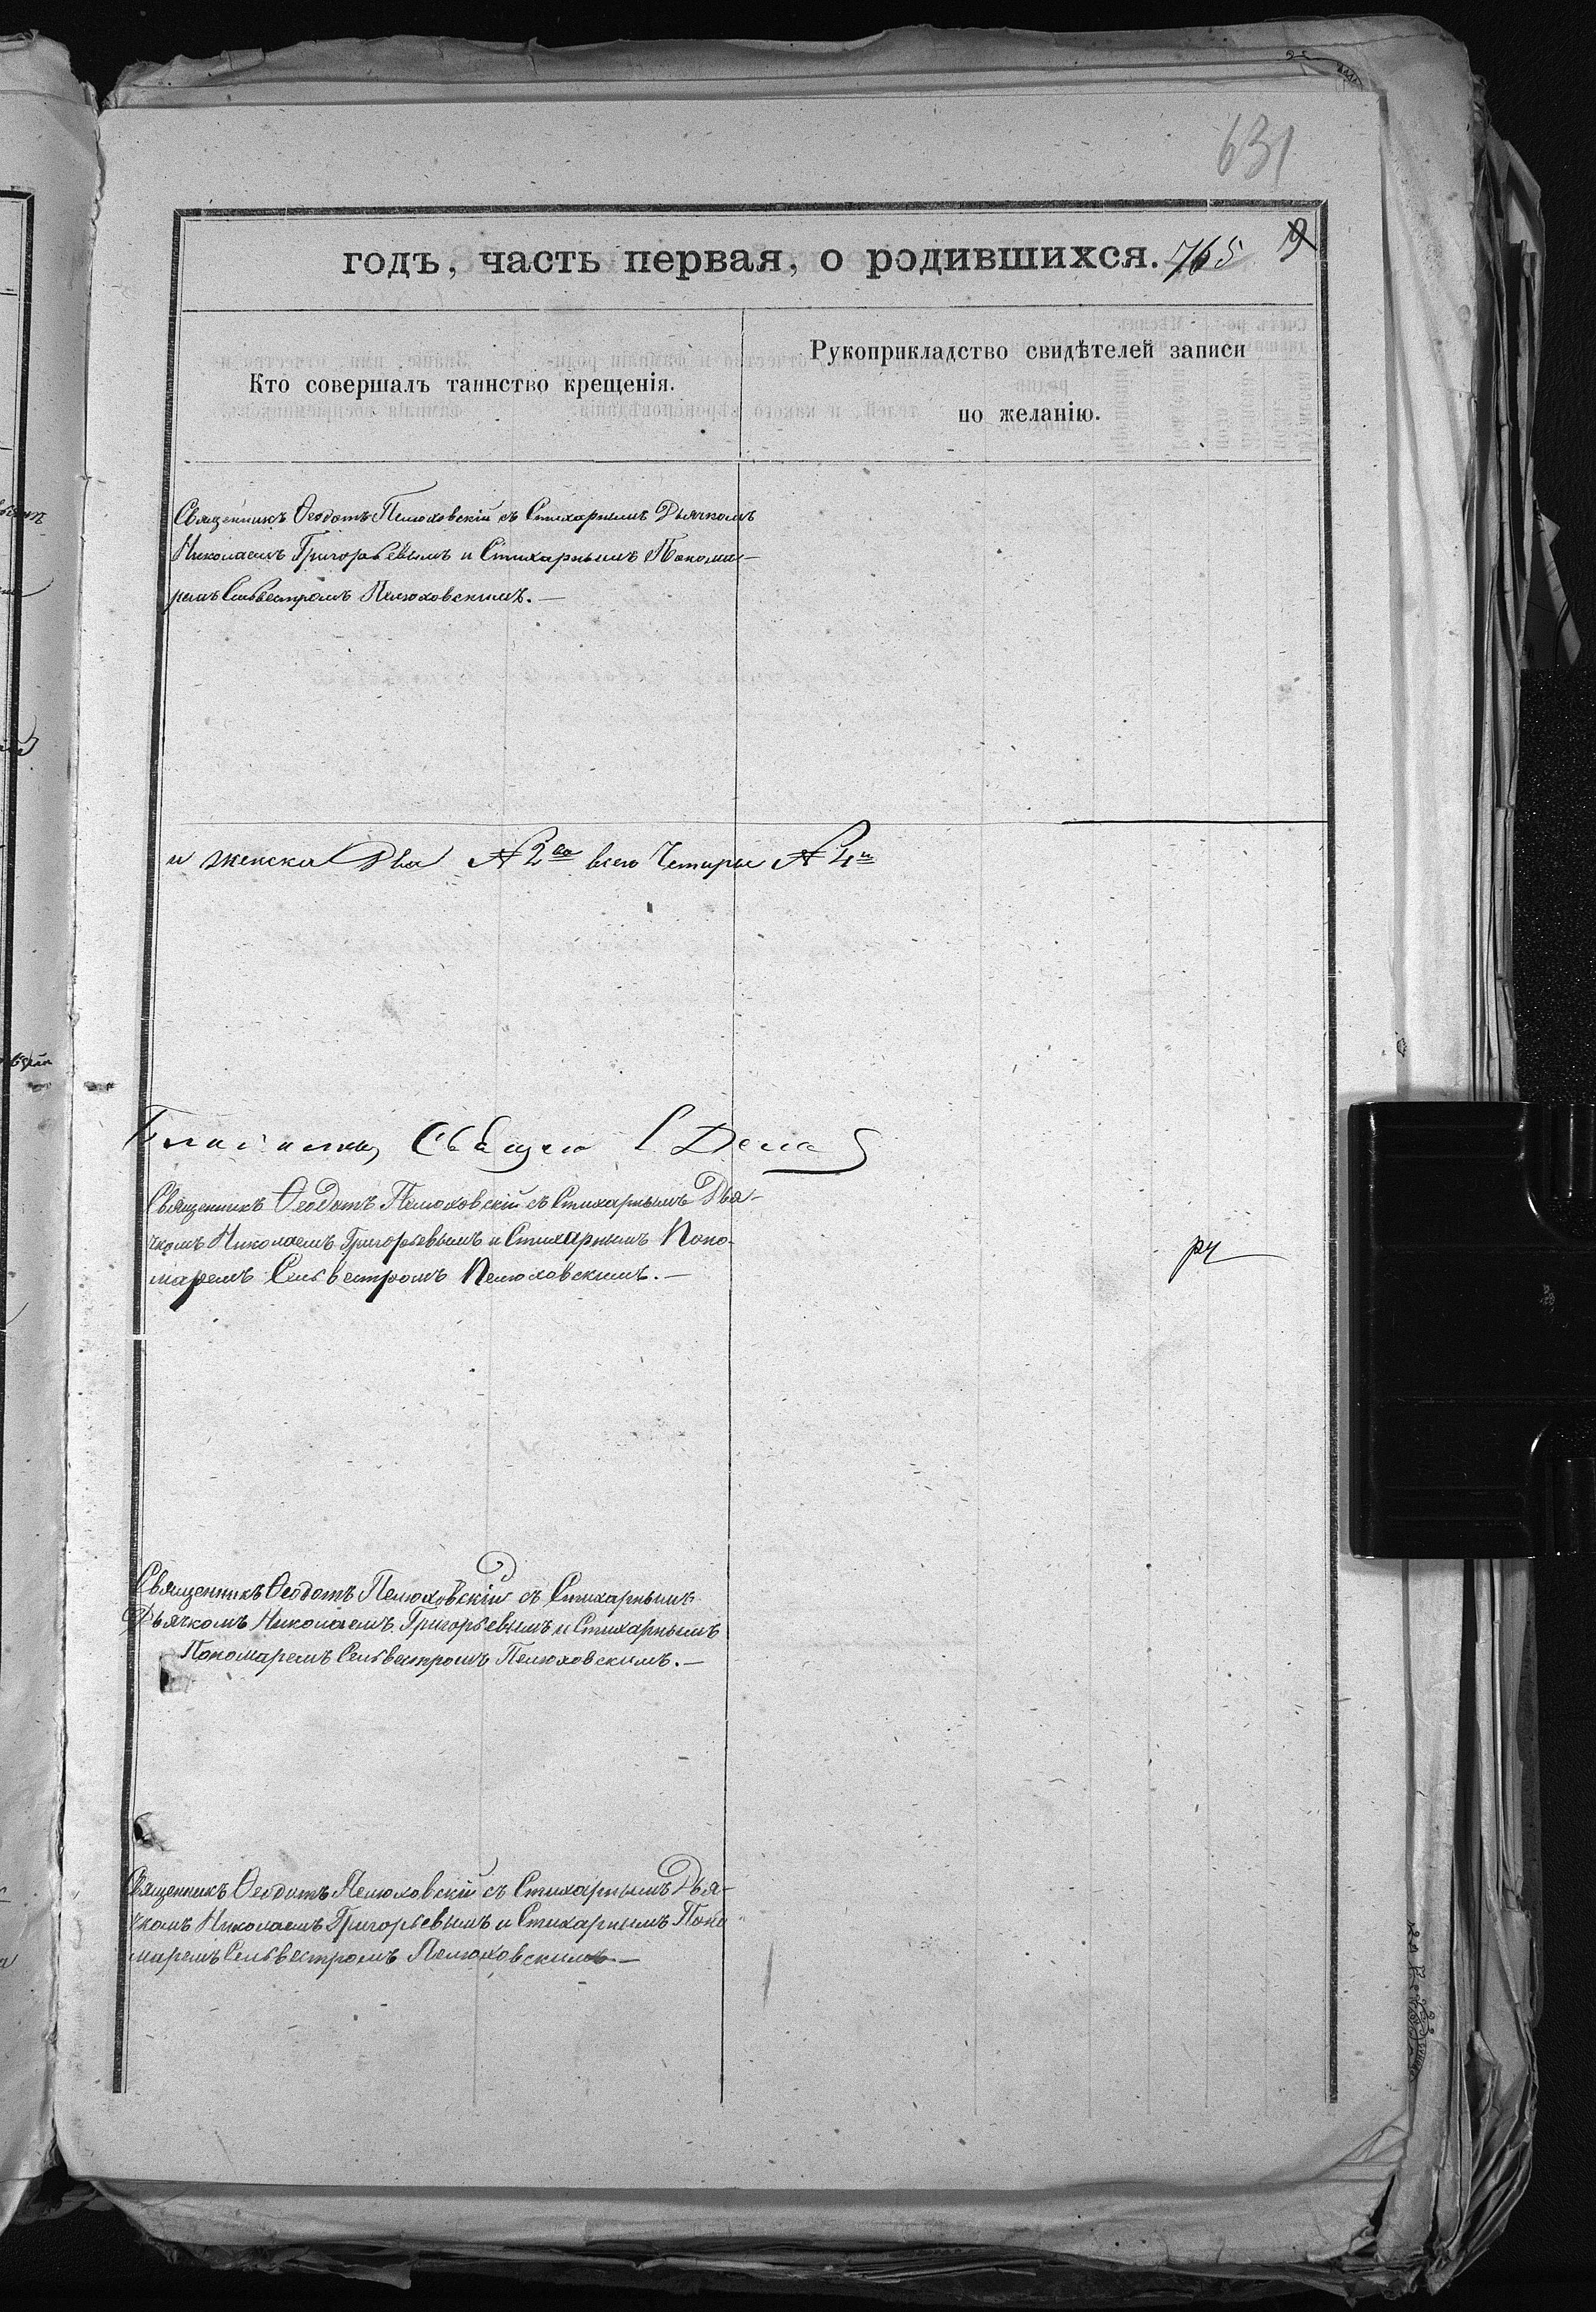 631
годъ, часть первая, о родившихся. 765 9
Кто совершалъ таинство крещенія.
Рукоприкладство свидѣтелей записи
по желанію.
Священникъ Ѳеодотъ Пелюховскій съ Стихарнымъ Дьячкомъ
Николаемъ Григорьевымъ и Стихарнымъ Понома-
ремъ Сильвестромъ Пелюховскимъ. —
и женска Два № 2ва всего Четыре № 4и
Священникъ Ѳеодотъ Пелюховскій съ Стихарнымъ Дья-
чкомъ Николаемъ Григорьевымъ и Стихарнымъ Поно-
маремъ Сельвестромъ Пелюховскимъ. —
Священникъ Ѳеодотъ Пелюховскій съ Стихарнымъ
Дьячкомъ Николаемъ Григорьевымъ и Стихарнымъ
Пономаремъ Сельвестромъ Пелюховскимъ. —
Священникъ Ѳеодотъ Пелюховскій съ Стихарнымъ Дья-
чкомъ Николаемъ Григорьевымъ и Стихарнымъ Поно-
маремъ Сельвестромъ Пелюховскимъ —